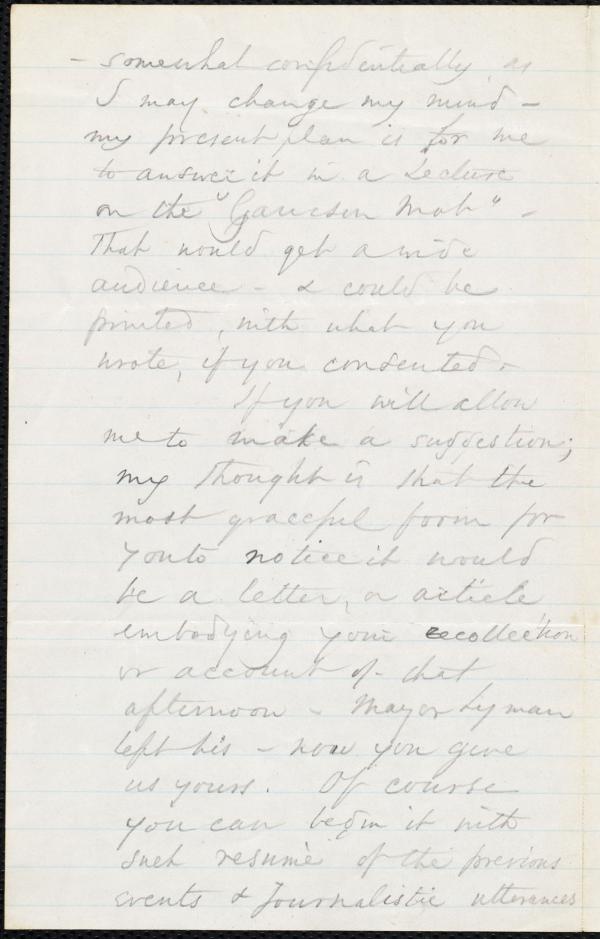 - somewhat confidentially, as
I may change my mind -
my present plan is for me
to answer it in a Lecture
on the "Garrison Mob" -
That would get a wide
audience - & could be
printed, with what you
wrote, if you consented -
If you will allow
me to make a suggestion;
my thought is that the
most graceful form for
you to notice it would
be a letter, or article
embodying your recollection
or account of that
afternoon - Mayor Lyman
left his - now you give
us yours. Of course
you can begin it with
such resumè of the previous
events & Journalistic utterances